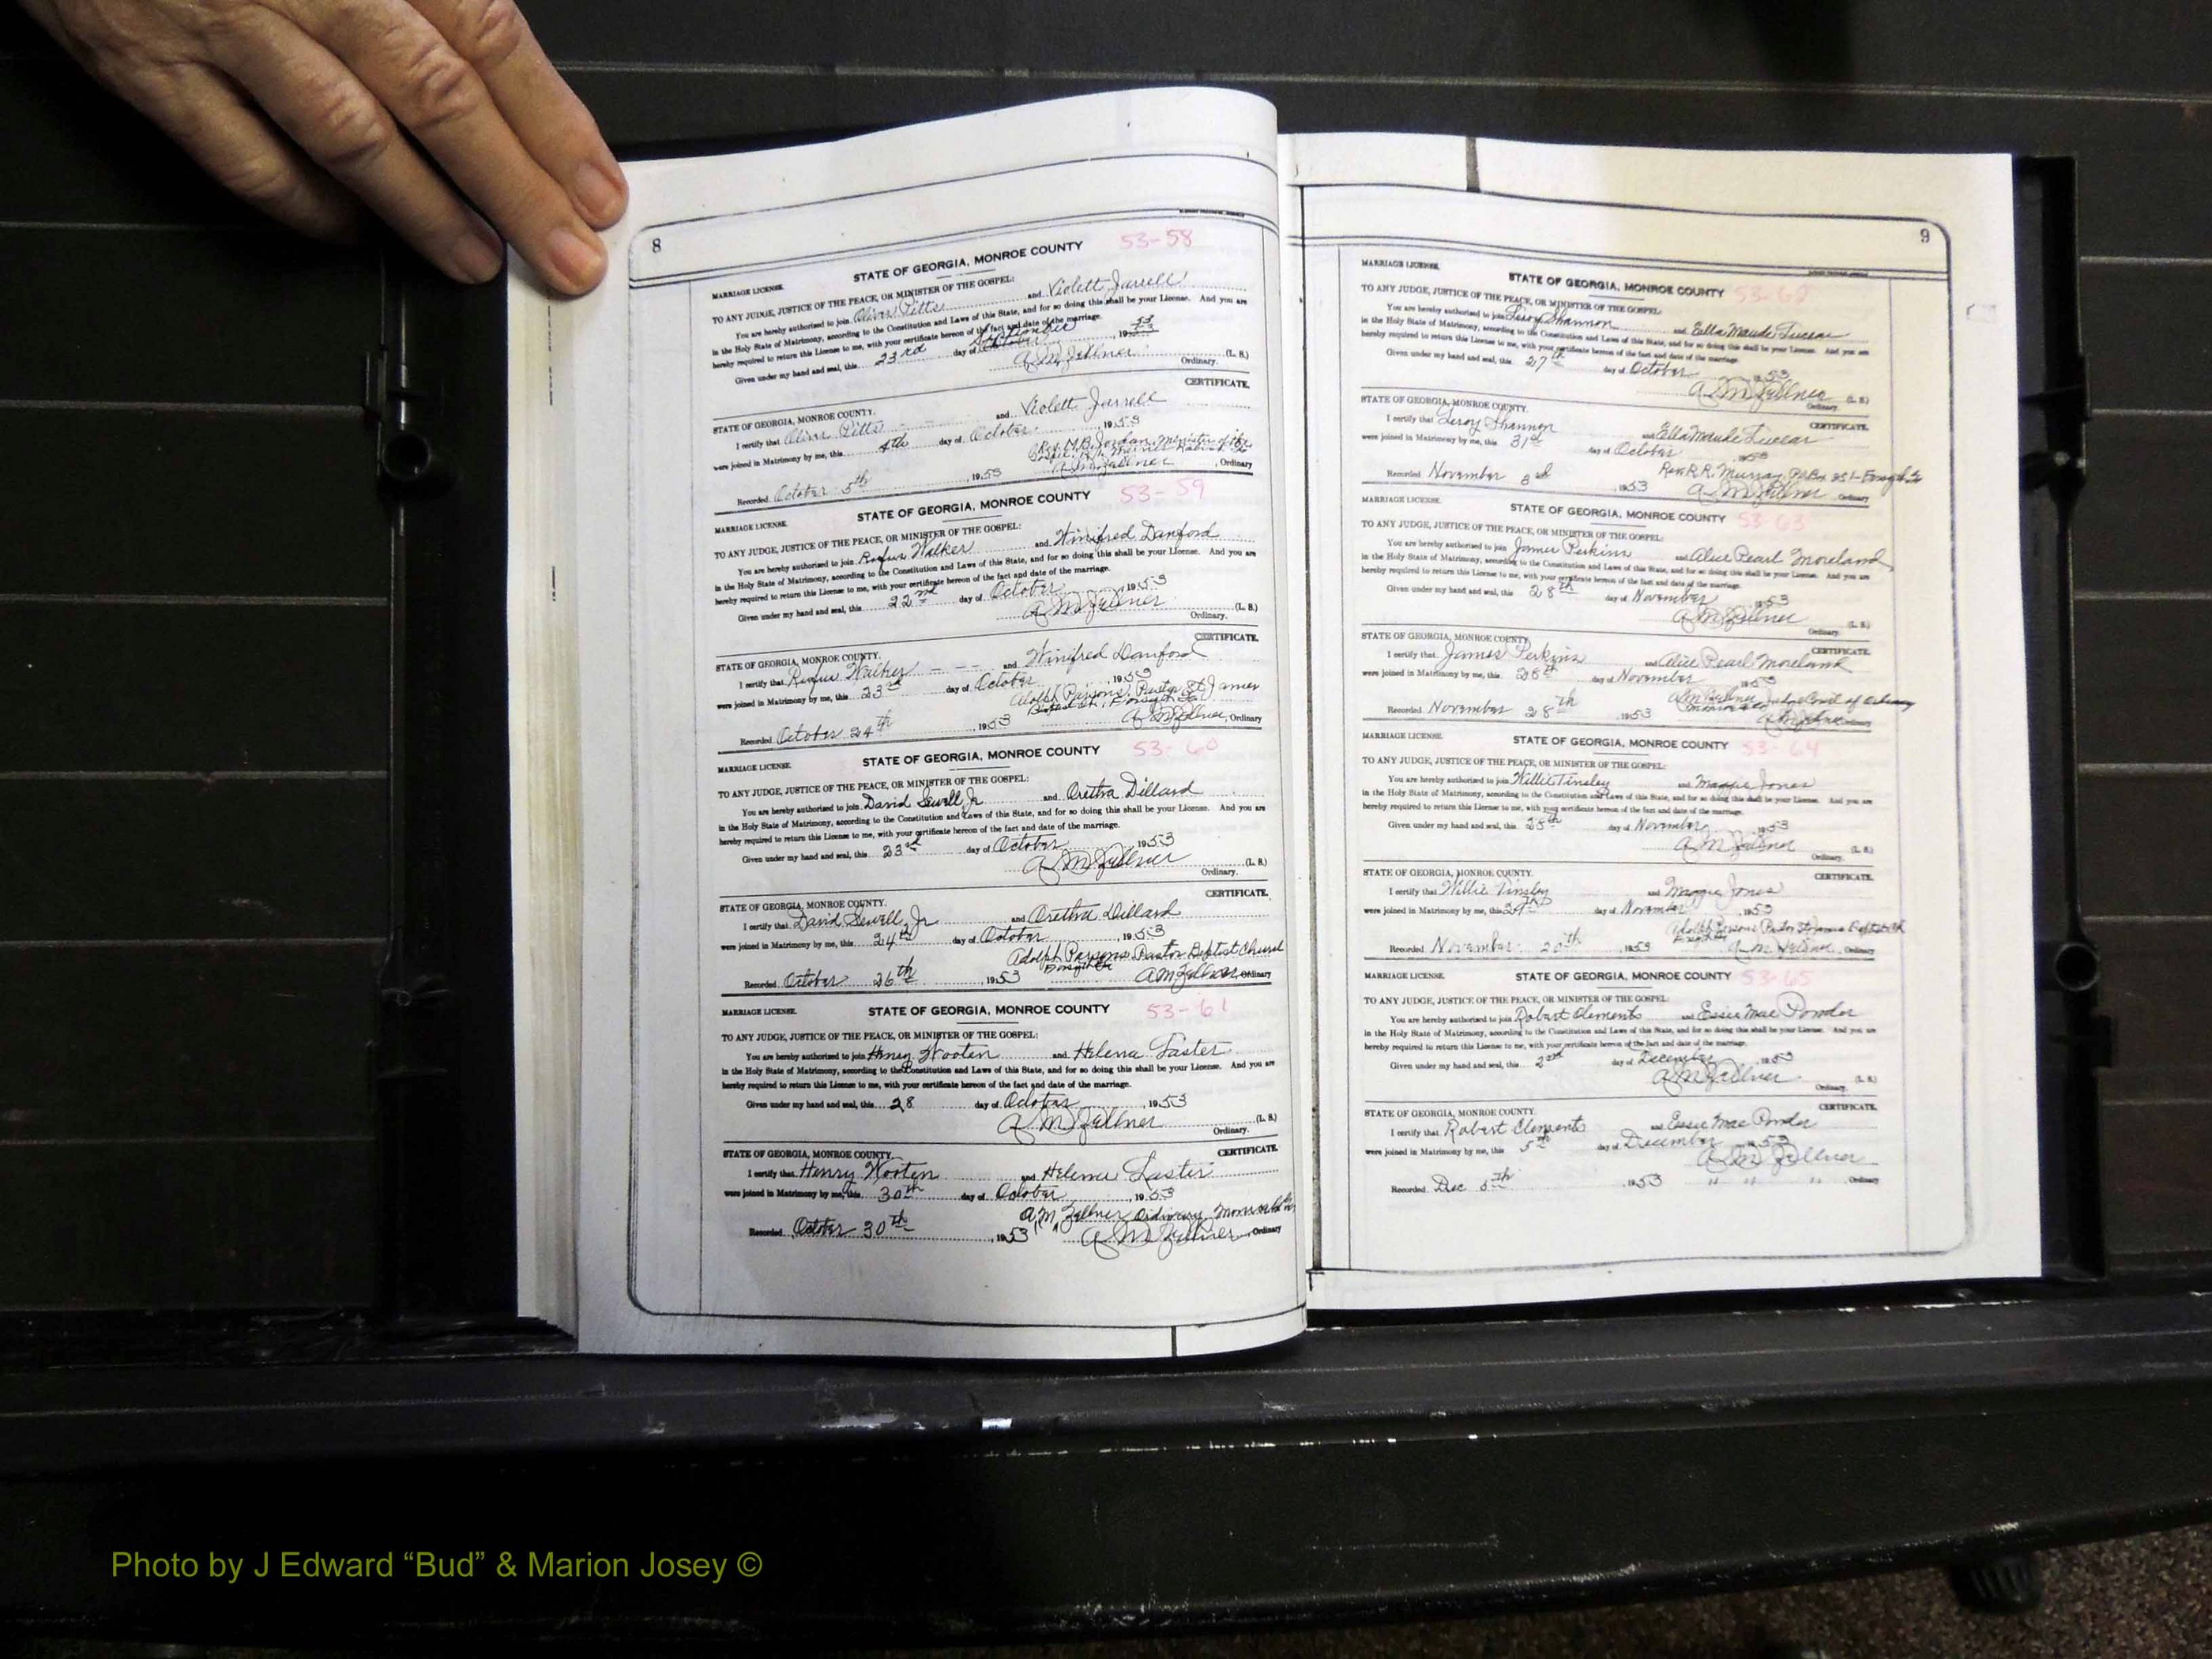 8
STATE OF GEORGIA, MONROE COUNTY 53-58
MARRIAGE LICENSE.
TO ANY JUDGE, JUSTICE OF THE PEACE, OR MINISTER OF THE GOSPEL:
You are hereby authorized to join Oliver Pitts and Violett Jarrell
in the Holy State of Matrimony, according to the Constitution and Laws of this State, and for so doing this shall be your License. And you are
hereby required to return this License to me, with your certificate hereon of the fact and date of the marriage.
Given under my hand and seal, this 23rd day of September 1953
A. M. Zellner (L. S.)
Ordinary.
CERTIFICATE.
STATE OF GEORGIA, MONROE COUNTY.
I certify that Oliver Pitts and Violett Jarrell
were joined in Matrimony by me, this 4th day of October, 1953
Rev. M.B. Jordan, Minister of the
Recorded October 5th, 1953 A. M. Zellner, Ordinary
STATE OF GEORGIA, MONROE COUNTY 53-59
MARRIAGE LICENSE.
TO ANY JUDGE, JUSTICE OF THE PEACE, OR MINISTER OF THE GOSPEL:
You are hereby authorized to join Rufus Walker and Winifred Danford
in the Holy State of Matrimony, according to the Constitution and Laws of this State, and for so doing this shall be your License. And you are
hereby required to return this License to me, with your certificate hereon of the fact and date of the marriage.
Given under my hand and seal, this 22nd day of October, 1953
A M Zellner (L. S.)
Ordinary.
CERTIFICATE.
STATE OF GEORGIA, MONROE COUNTY.
I certify that Rufus Walker and Winifred Danford
were joined in Matrimony by me, this 23rd day of October, 1953
Adolph Parsons, Pastor St James
Baptist Ch, Forsyth Ga
Recorded October 24th, 1953 A. M. Zellner, Ordinary
STATE OF GEORGIA, MONROE COUNTY 53-60
MARRIAGE LICENSE.
TO ANY JUDGE, JUSTICE OF THE PEACE, OR MINISTER OF THE GOSPEL:
You are hereby authorized to join David Sewell Jr and Oretha Dillard
in the Holy State of Matrimony, according to the Constitution and Laws of this State, and for so doing this shall be your License. And you are
hereby required to return this License to me, with your certificate hereon of the fact and date of the marriage.
Given under my hand and seal, this 23rd day of October, 1953
A M Zellner (L. S.)
Ordinary.
CERTIFICATE.
STATE OF GEORGIA, MONROE COUNTY.
I certify that David Sewell, Jr and Oretha Dillard
were joined in Matrimony by me, this 24th day of October, 1953
Adolph Parsons, Pastor Baptist Church
Forsyth Ga
Recorded October 26th, 1953 A M Zellner, Ordinary
STATE OF GEORGIA, MONROE COUNTY 53-61
MARRIAGE LICENSE.
TO ANY JUDGE, JUSTICE OF THE PEACE, OR MINISTER OF THE GOSPEL:
You are hereby authorized to join Henry Wooten and Helena Laster
in the Holy State of Matrimony, according to the Constitution and Laws of this State, and for so doing this shall be your License. And you are
hereby required to return this License to me, with your certificate hereon of the fact and date of the marriage.
Given under my hand and seal, this 28 day of October, 1953
A M Zellner (L. S.)
Ordinary.
CERTIFICATE.
STATE OF GEORGIA, MONROE COUNTY.
I certify that Henry Wooten and Helena Laster
were joined in Matrimony by me, this 30th day of October, 1953
A. M. Zellner Ordinary, Monroe
Recorded October 30th, 1953 A M Zellner, Ordinary
9
MARRIAGE LICENSE.
STATE OF GEORGIA, MONROE COUNTY 53-62
TO ANY JUDGE, JUSTICE OF THE PEACE, OR MINISTER OF THE GOSPEL:
You are hereby authorized to join Leroy Shannon and Ella Maude
in the Holy State of Matrimony, according to the Constitution and Laws of this State, and for so doing this shall be your License. And you are
hereby required to return this License to me, with your certificate hereon of the fact and date of the marriage.
Given under my hand and seal, this 27th day of October 1953
A M Zellner (L. S.)
Ordinary.
STATE OF GEORGIA, MONROE COUNTY. CERTIFICATE.
I certify that Leroy Shannon and Ella Maude
were joined in Matrimony by me, this 31st day of October 1953
Rev. R. R. Murray, P.O. Box 351-Forsyth Ga
Recorded November 3rd, 1953 A M Zellner, Ordinary
MARRIAGE LICENSE.
STATE OF GEORGIA, MONROE COUNTY 53-63
TO ANY JUDGE, JUSTICE OF THE PEACE, OR MINISTER OF THE GOSPEL:
You are hereby authorized to join James Perkins and Alice Pearl Moreland
in the Holy State of Matrimony, according to the Constitution and Laws of this State, and for so doing this shall be your License. And you are
hereby required to return this License to me, with your certificate hereon of the fact and date of the marriage.
Given under my hand and seal, this 28th day of November 1953
A M Zellner (L. S.)
Ordinary.
STATE OF GEORGIA, MONROE COUNTY. CERTIFICATE.
I certify that James Perkins and Alice Pearl Moreland
were joined in Matrimony by me, this 28th day of November 1953
A M Zellner Judge Court of Ordinary
Recorded November 28th, 1953 A M Zellner Ordinary
MARRIAGE LICENSE.
STATE OF GEORGIA, MONROE COUNTY 53-64
TO ANY JUDGE, JUSTICE OF THE PEACE, OR MINISTER OF THE GOSPEL:
You are hereby authorized to join Willie Tinsley and Maggie Jones
in the Holy State of Matrimony, according to the Constitution and Laws of this State, and for so doing this shall be your License. And you are
hereby required to return this License to me, with your certificate hereon of the fact and date of the marriage.
Given under my hand and seal, this 28th day of November, 1953
A M Zellner (L. S.)
Ordinary.
STATE OF GEORGIA, MONROE COUNTY. CERTIFICATE.
I certify that Willie Tinsley and Maggie Jones
were joined in Matrimony by me, this day of November 1953
Adolph Parsons Pastor St James Baptist Ch
Forsyth Ga
Recorded November, 1953 A. M. Zellner, Ordinary
MARRIAGE LICENSE.
STATE OF GEORGIA, MONROE COUNTY 53-65
TO ANY JUDGE, JUSTICE OF THE PEACE, OR MINISTER OF THE GOSPEL:
You are hereby authorized to join Robert Clements and Essie Mae Ponder
in the Holy State of Matrimony, according to the Constitution and Laws of this State, and for so doing this shall be your License. And you are
hereby required to return this License to me, with your certificate hereon of the fact and date of the marriage.
Given under my hand and seal, this 2nd day of December, 1953
A M Zellner (L. S.)
Ordinary.
STATE OF GEORGIA, MONROE COUNTY. CERTIFICATE.
I certify that Robert Clements and Essie Mae Ponder
were joined in Matrimony by me, this 5th day of December 1953
A M Zellner
Recorded Dec 5th, 1953 " " " Ordinary
Photo by J Edward “Bud” & Marion Josey ©